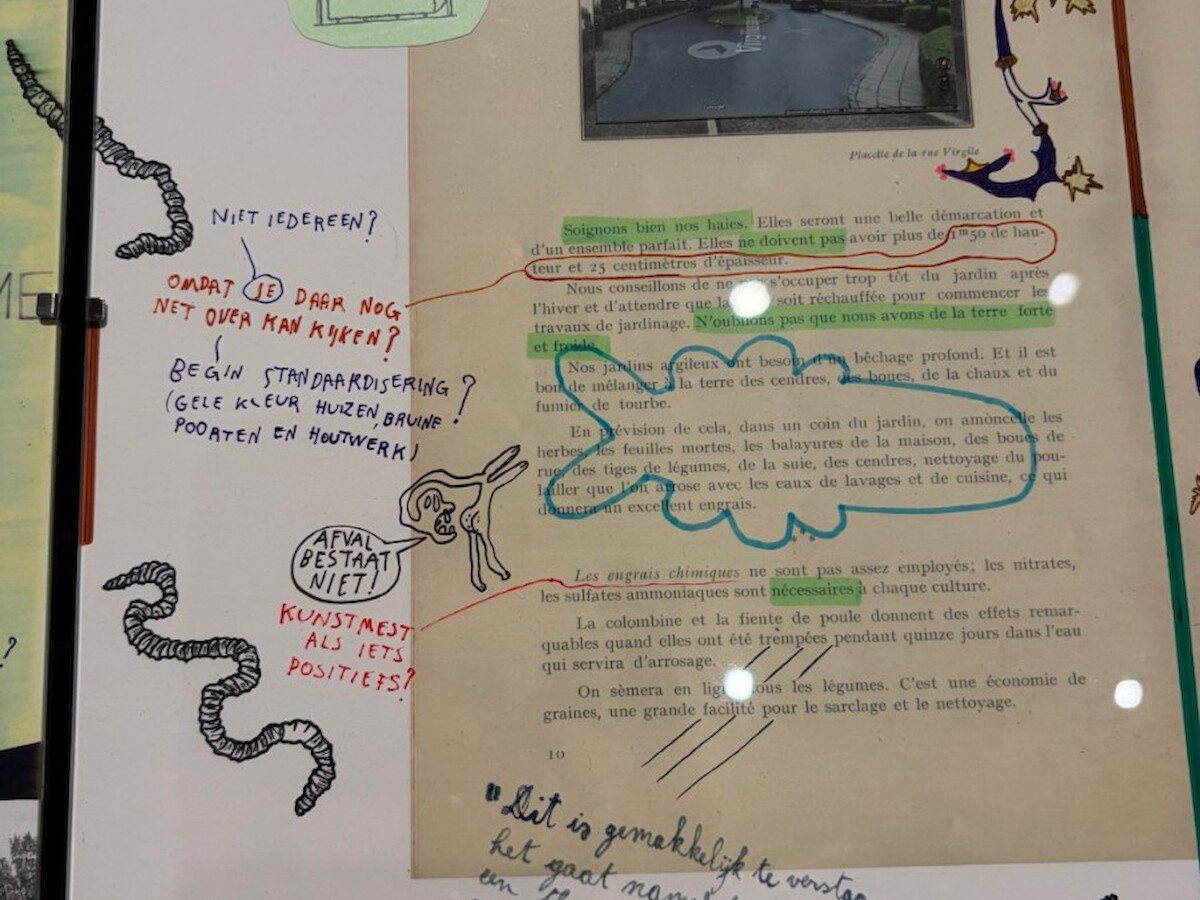 Virgile
Placette de la rue Virgile
NIET IEDEREEN?
OMDAT JE DAAR NOG
NET OVER KAN KIJKEN?
BEGIN STANDAARDISERING?
(GELE KLEUR HUIZEN, BRUINE
POORTEN EN HOUTWERK)
AFVAL
BESTAAT
NIET!
KUNSTMEST
ALS IETS
POSITIEFS?
Soignons bien nos haies. Elles seront une belle démarcation et
d'un ensemble parfait. Elles ne doivent pas avoir plus de 1m50 de hau-
teur et 25 centimètres d'épaisseur.
Nous conseillons de ne s'occuper trop tôt du jardin après
l'hiver et d'attendre que la soit réchauffée pour commencer les
travaux de jardinage. N'oublions pas que nous avons de la terre forte
et froide.
Nos jardins argileux ont besoin d'un bêchage profond. Et il est
bon de mélanger à la terre des cendres, des boues, de la chaux et du
fumier de tourbe.
En prévision de cela, dans un coin du jardin, on amoncelle les
herbes, les feuilles mortes, les balayures de la maison, des boues de
rue, des tiges de légumes, de la suie, des cendres, nettoyage du pou-
lailler que l'on arrose avec les eaux de lavages et de cuisine, ce qui
donnera un excellent engrais.
Les engrais chimiques ne sont pas assez employés; les nitrates,
les sulfates ammoniaques sont nécessaires à chaque culture.
La colombine et la fiente de poule donnent des effets remar-
quables quand elles ont été trempées pendant quinze jours dans l'eau
qui servira d'arrosage.
On sèmera en tous les légumes. C'est une économie de
graines, une grande facilité pour le sarclage et le nettoyage.
10
"Dit is gemakkelijk te
het gaat
een
ME
?